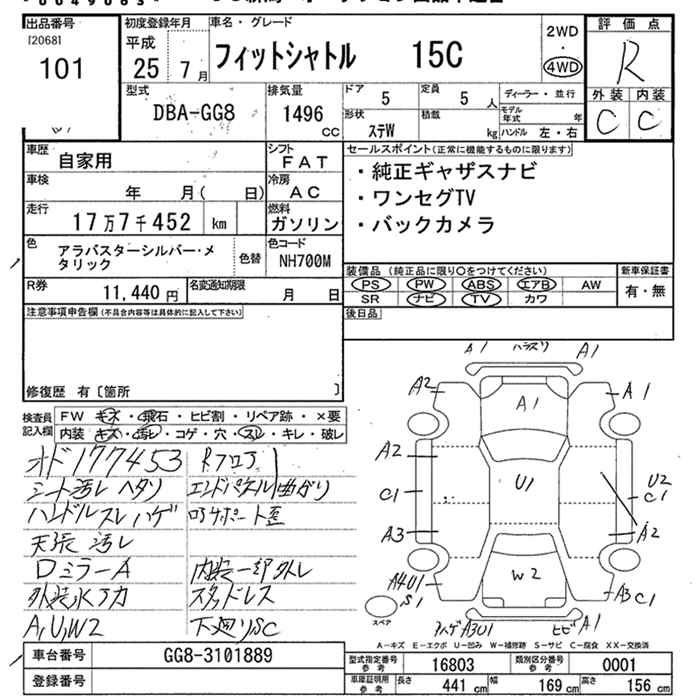 出品番号
[2068]
101
初度登録年月
平成
25年 7月
車名・グレード
フィットシャトル 15C
2WD
・
4WD
評価点
R
外装 内装
C C
型式
DBA-GG8
排気量
1496
CC
ドア
5
定員
5人
ディーラー・並行
形状
ステW
積載
kg
モデル年式 年
ハンドル 左・右
車歴
自家用
シフト
FAT
車検
年 月( 日)
冷房
AC
走行
17万7千452 km
燃料
ガソリン
色
アラバスターシルバー・メ
タリック
色替
色コード
NH700M
R券
11,440円
名変通知期限
月 日
セールスポイント(正常に機能するものに限ります)
・純正ギャザスナビ
・ワンセグTV
・バックカメラ
装備品 (純正品に限り○をつけてください)
PS PW ABS エアB AW
SR ナビ TV カワ
新車保証書
有・無
後日品
注意事項申告欄(不具合内容等は具体的に記入して下さい)
修復歴 有〔箇所 〕
検査員
記入欄
FW キズ・飛石・ヒビ割・リペア跡・×要
内装 キズ・汚レ・コゲ・穴・スレ・キレ・破レ
オド177453
シート汚レ ヘタリ
ハンドルスレ ハゲ
天張汚レ
DミラーA
A,U,W2
Rフロア
エンドパネル曲がり
内装一部外レ
スタッドレス
下廻りSC
A1 A1
A2 A1
A1
A2
C1 U1 U2
C1
A3 A2
W2
A4U1
S1
A3 C1
A3U1 ヒビ A1
スペア
A―キズ E―エクボ U―凹み W―補修跡 S―サビ C―腐食 XX―交換済
車台番号
GG8-3101889
登録番号
型式指定番号
参考
16803
類別区分番号
参考
0001
車庫証明用
参考
長さ
441cm
幅
169cm
高さ
156cm